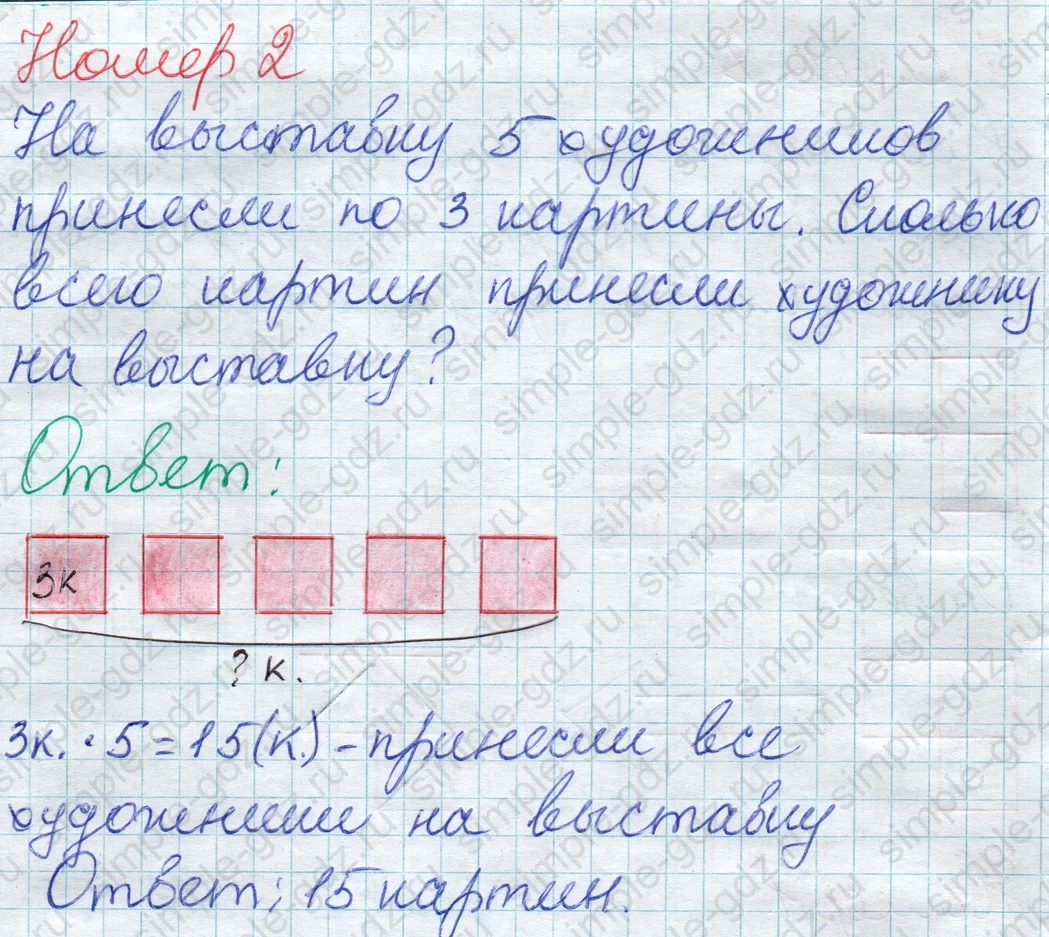 Номер 2
На выставку 5 художников
принесли по 3 картины. Сколько
всего картин принесли художнику
на выставку?
Ответ:
3к
? к.
3к. · 5 = 15(к.) – принесли все
художники на выставку
Ответ: 15 картин.
simple-gdz.ru